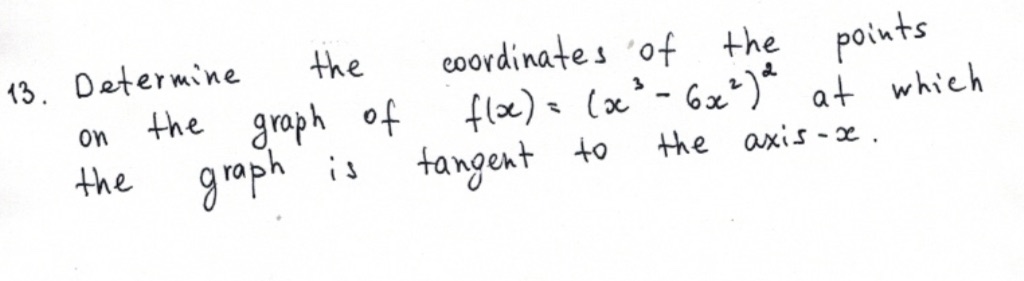 13. Determine the coordinates of the points
on the graph of f(x) = (x³ - 6x²)² at which
the graph is tangent to the axis-x.